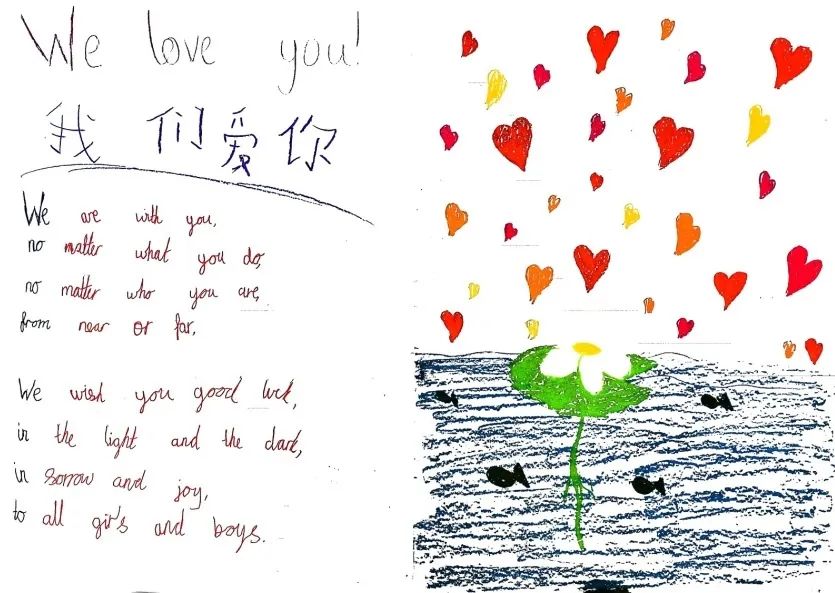 We love you!
我们爱你
We are with you,
no matter what you do,
no matter who you are,
from near or far.
We wish you good luck,
in the light and the dark,
in sorrow and joy,
to all girls and boys.